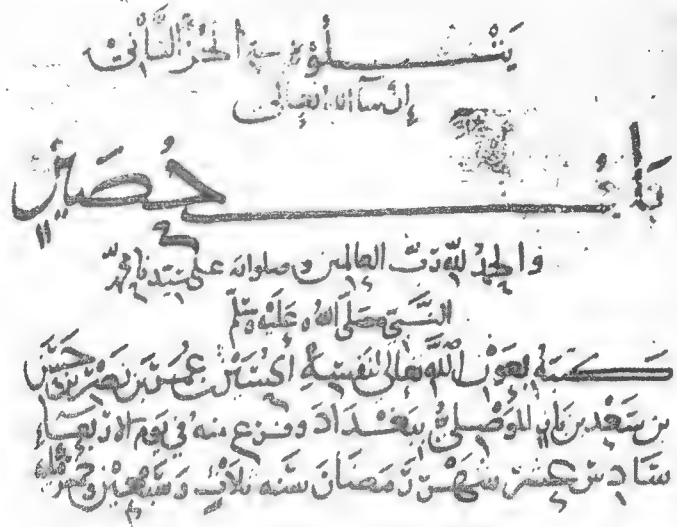 يَتْلُوهُ فِي الْجُزْءِ الثَّانِي
إن شاء الله تعالى
باب حُصَين
والحمدُ لله ربّ العالمين وصلواته على سيّدنا محمد
النبيّ صلى اللهُ عَلَيْهِ وسَلّم
كتبهُ بعونِ اللَّه تعالى لنفسِهِ الحُسَيْن بن عُمَر بن نَصْر بن حَسَن
بن سَعْد بن باز الموصليّ ببغْدَادَ وفرغ منه في يوم الاربعاء
سَادِسَ عشر شَهْر رَمضانَ سَنه ثلاثٍ وسَبْعين وخمس مائه